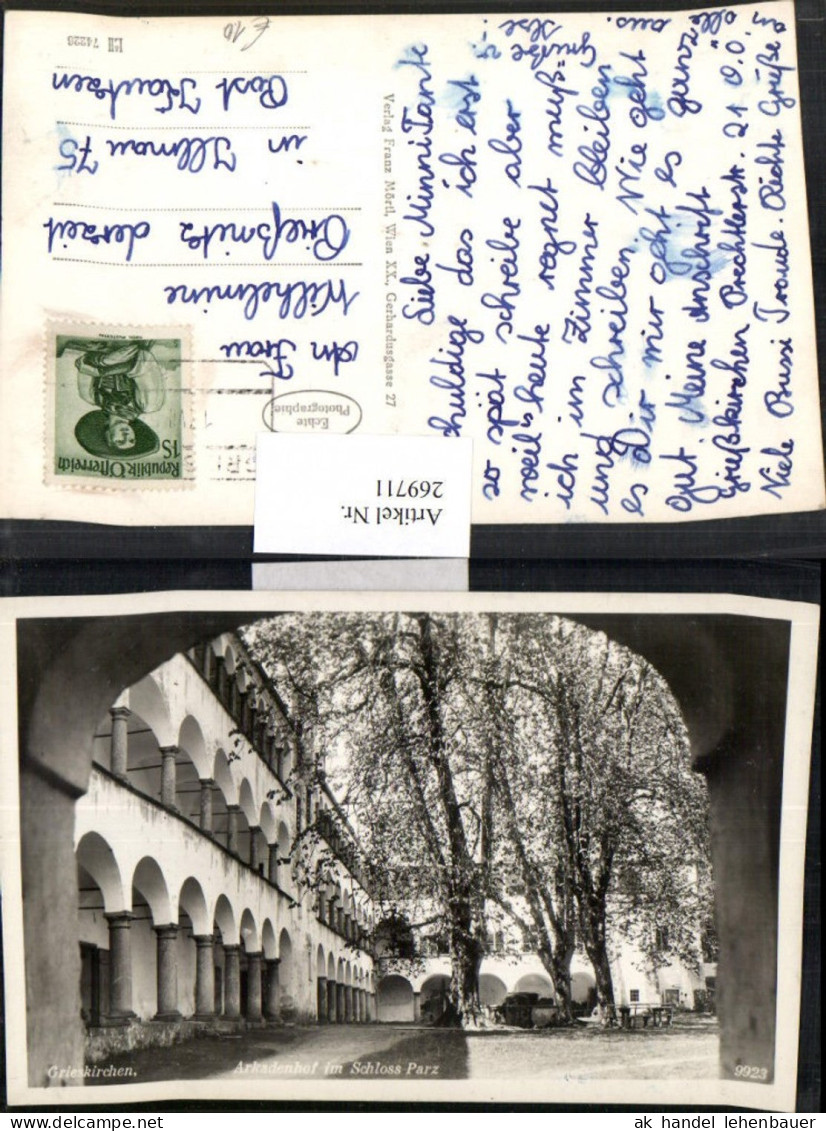 Liebe Minni Tante
schuldige das ich erst
so spät schreibe aber
weil's heute regnet muß=
ich im Zimmer bleiben
und schreiben. Wie geht
es Dir mir geht es ganz
gut. Meine Anschrift
Grießkirchen Prechtlerstr. 21 O.Ö.
Viele Bussi Traude.
Grüße
Ilse
aus.
Verlag Franz Mörtl, Wien XX., Gerhardusgasse 27
Echte
Photographie
Republik Österreich
1S
An Frau
Wilhelmine
Grießnitz derzeit
in Illmau 75
Post Kautzen
L II 74226
€ 10
Artikel Nr.
269711
Grieskirchen,
Arkadenhof im Schloss Parz
9923
ak handel lehenbauer